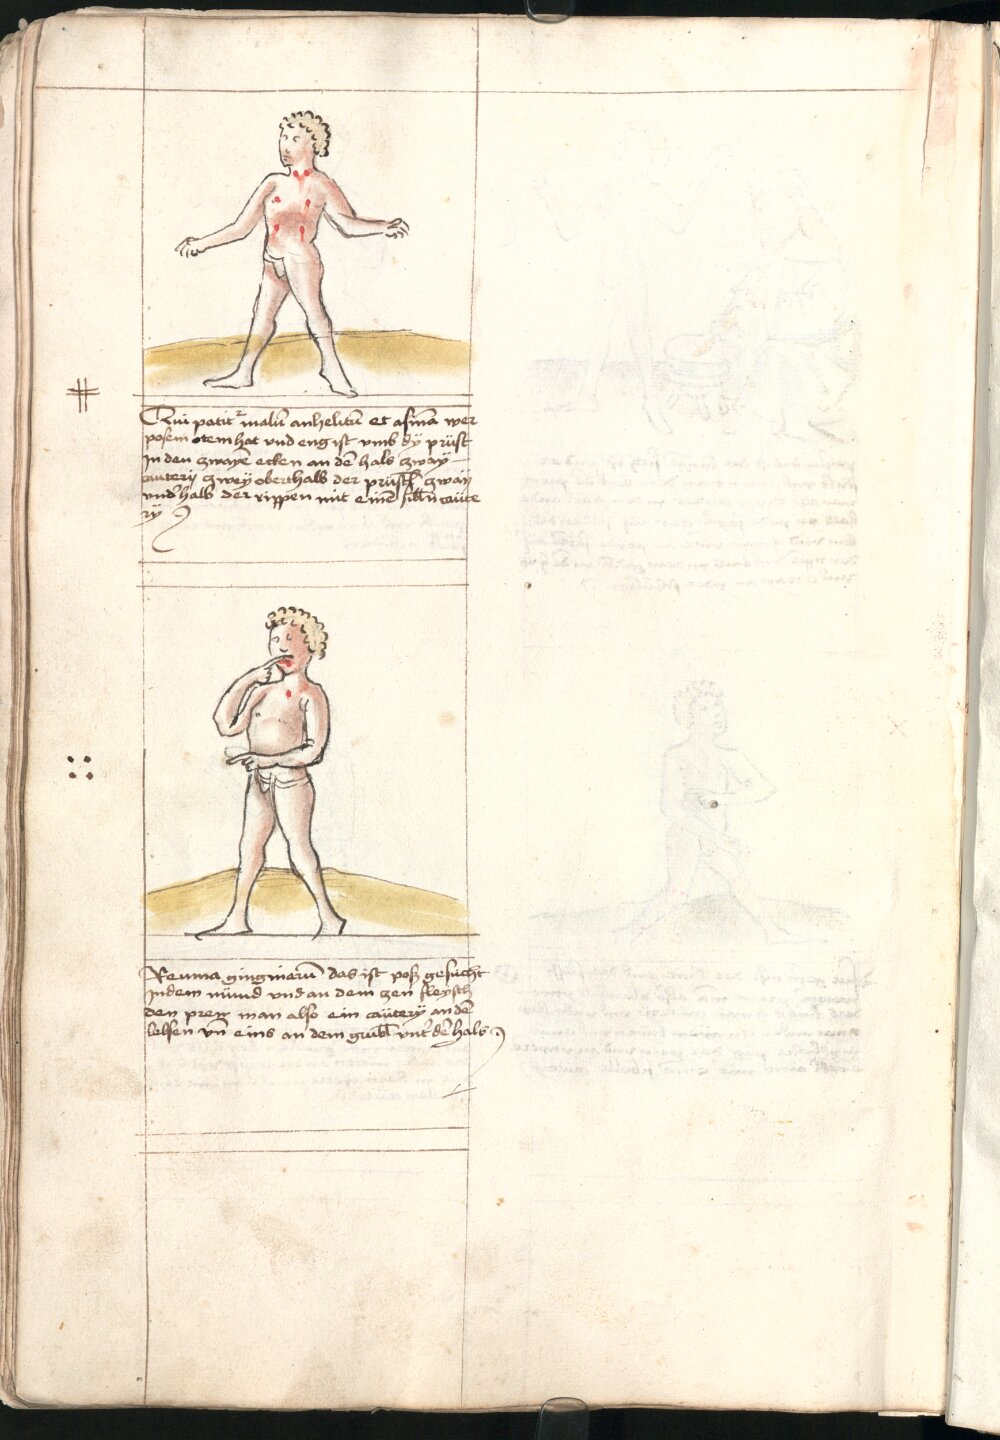 Qui patit² malū anhelitū et asma wer
posem otem hat vnd eng ist vmb dÿ prüst
in den zwayē ecken an dē hals zway
cauterÿ zwey oberthalb der prüstl zway
vnd̕halb der rippen mit eīnē silbn̄ caute
rÿ
Reuma gingiuarū das ist poß gesücht
in dem münd vnd an dem zen fleysch
den pren man also ein cauterÿ an dē
lebsen vn̄ eins an dem grübl vnt̕ dē hals